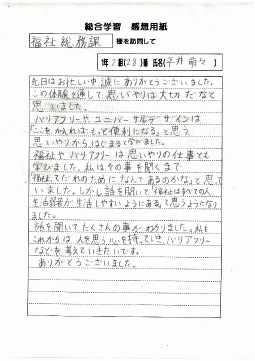 総合学習 感想用紙
福祉総務課 様を訪問して
1年2組(28)番 氏名(平井萌々)
先日はお忙しい中誠にありがとうございました。
この体験を通して、思いやりは大切だなと
思いました。
バリアフリーや、ユニバーサルデザインは
「ここをかえればもっと便利になる」と思う
思いやりからはじまると学びました。
福祉やバリアフリーは思いやりの仕事とも
学びました。私はその事を聞くまで
「福祉ってだれのためになんであるのかな」と思って
いました。しかし話を聞いて「福祉はすべての人
を活躍者が生活しやすいようにある」と思うようになり
ました。
話を聞いてたくさんの事がわかりました。私も
これからは人を思う心を持っていき、バリアフリー
などを考えていきたいです。
ありがとうございました。